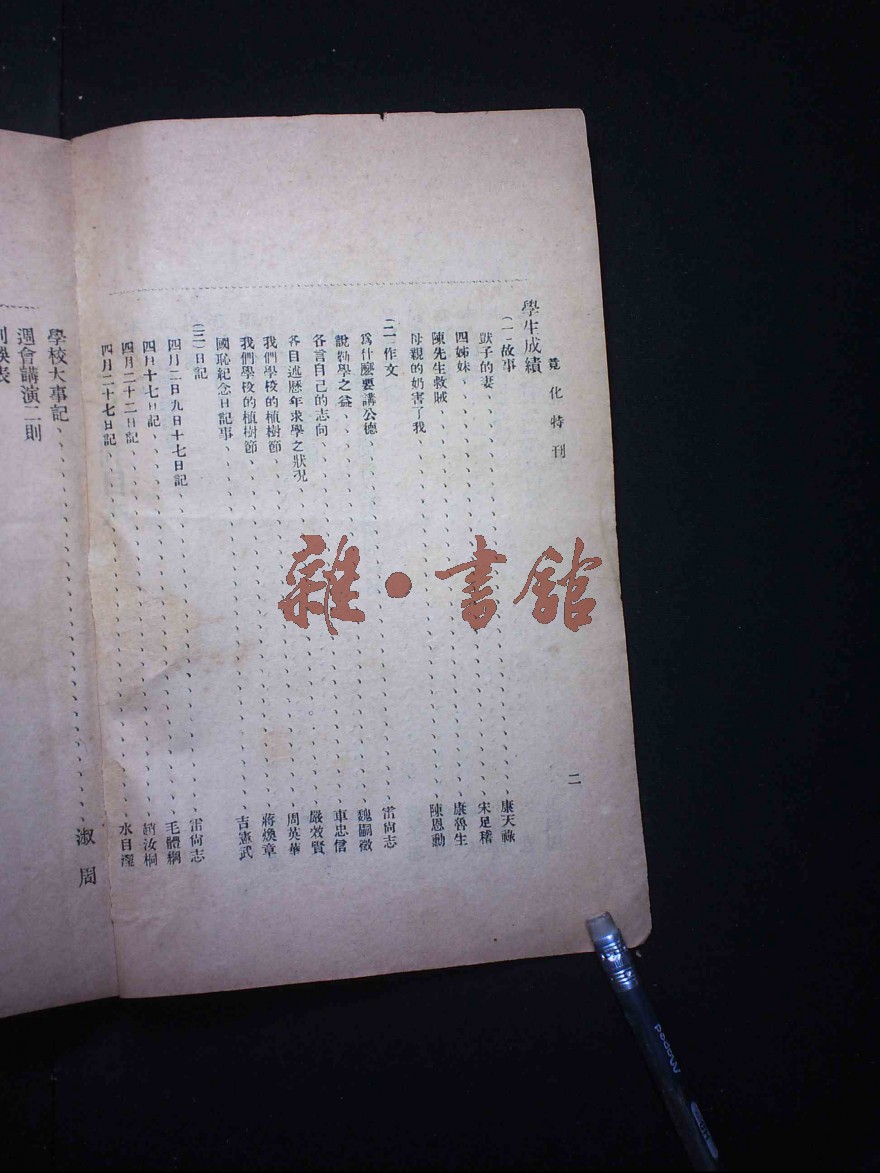 覺化特刊
二
學生成績
(一)故事
獃子的妻、、、康天祿
四姊妹、、、宋足稽
陳先生救賊、、、康魯生
母親的奶害了我、、、陳恩勳
(二)作文
爲什麽要講公德、、、雷尙志
說勤學之益、、、魏嗣徵
各言自己的志向、、、車忠信
各自述歷年求學之狀況、、、嚴效賢
我們學校的植樹節、、、周英華
我們學校的植樹節、、、蔣煥章
國恥紀念日記事、、、吉憲武
(三)日記
四月二日九日十七日記、、、雷尙志
四月十七日記、、、毛體綱
四月二十二日記、、、趙汝桐
四月二十七日記、、、水自瀅
學校大事記、、、淑周
週會講演二則
雜·書館